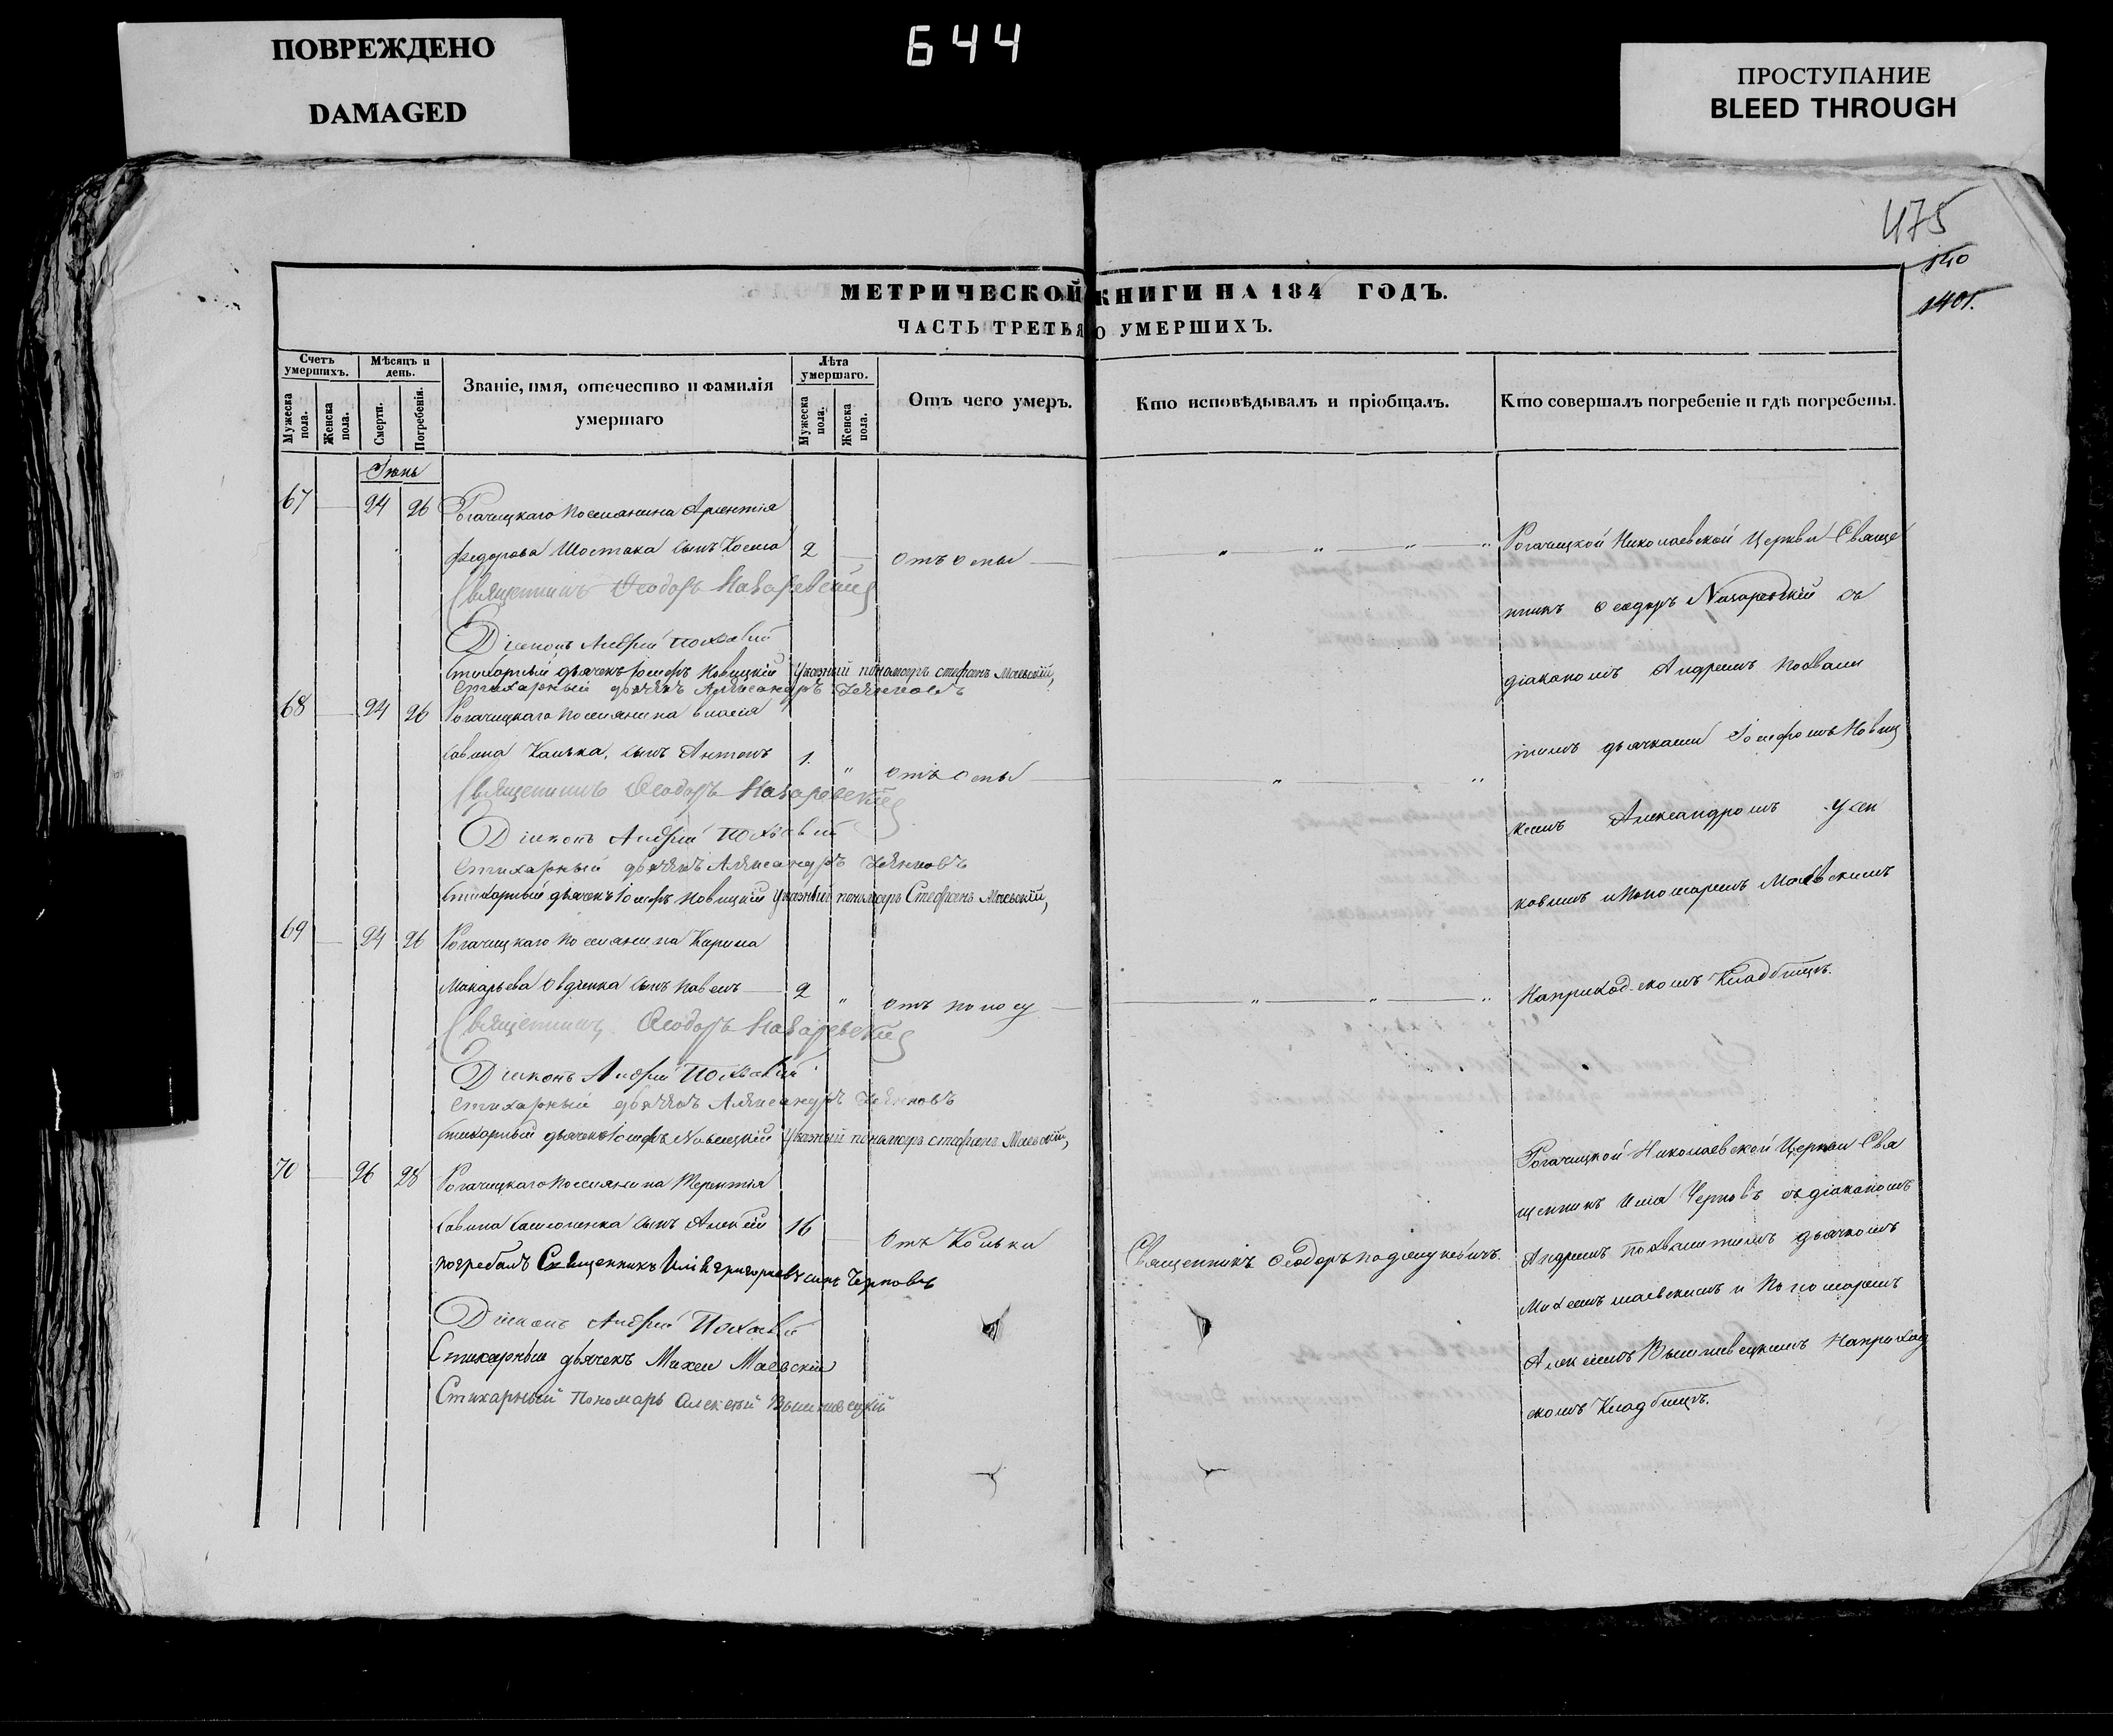 ПОВРЕЖДЕНО
DAMAGED
644
ПРОСТУПАНИЕ
BLEED THROUGH
475
140
1401.
МЕТРИЧЕСКОЙ КНИГИ НА 184 ГОДЪ.
ЧАСТЬ ТРЕТЬЯ О УМЕРШИХЪ.
Счетъ умершихъ.
Мужеска пола.
Женска пола.
Мѣсяцъ и день.
Смерти.
Погребенія.
Званіе, имя, отечество и фамилія
умершаго
Лѣта умершаго.
Мужеска пола.
Женска пола.
Отъ чего умеръ.
Кто исповѣдывалъ и пріобщалъ.
Кто совершалъ погребеніе и гдѣ погребены.
Іюнь
67 24 26 Рогачицкаго поселянина
Федорова Шостака сынъ Косма 2 отъ оспы
Священникъ Ѳеодоръ Назаревскій
Діаконъ Андрей Похвалій
Стихарный дьячекъ Іосифъ Новицкій Указный пономарь Стефанъ Маевскій,
Стихарный дьячекъ Александръ
68 24 26 Рогачицкаго поселянина Власія
Савина сынъ Антонъ 1. " отъ оспы
Священникъ Ѳеодоръ Назаревскій
Діаконъ Андрей Похвалій
Стихарный дьячекъ Александръ
Стихарный дьячекъ Іосифъ Новицкій Указный пономарь Стефанъ Маевскій,
69 24 26 Рогачицкаго поселянина Карпа
Макарьева сынъ Павелъ 2 " отъ поносу
Священникъ Ѳеодоръ Назаревскій
Діаконъ Андрей Похвалій
Стихарный дьячекъ Александръ
Стихарный дьячекъ Іосифъ Новицкій Указный пономарь Стефанъ Маевскій,
70 26 28 Рогачицкаго поселянина Терентія
Савина сынъ Алексій 16 отъ Кольки
погребалъ Священникъ Илія Григорьевъ сынъ Черновъ
Діаконъ Андрей Похвалій
Стихарный дьячекъ Михей Маевскій
Стихарный Пономарь Алексѣй Вышневецкій
Священникъ Ѳеодоръ
Рогачицкой Николаевской Церкви Свяще
нникъ Ѳеодоръ Назаревскій съ
діакономъ Андреемъ Похвали
тымъ дьячками Іосифомъ Новиц
кимъ Александромъ
ковымъ и Пономаремъ Маевскимъ
На приходскомъ Кладбищѣ.
Рогачицкой Николаевской Церкви Свя
щенникъ Илія Черновъ съ діакономъ
Андреемъ дьячкомъ
Михеемъ Маевскимъ и Пономаремъ
Алексіемъ Вышневецкимъ На приход
скомъ Кладбищѣ.